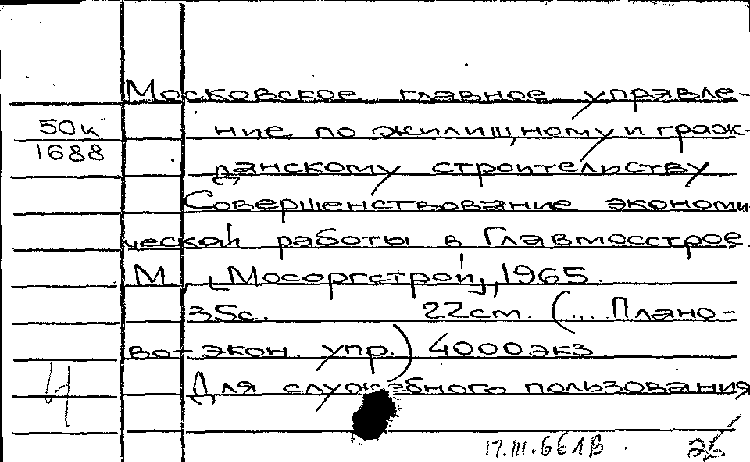 Московское главное управле-
50к
ние по жилищному и граж-
1688
данскому строительству
Совершенствование экономи
ческой работы в Главмосстрое.
М., [Мосоргстрой], 1965.
35с. 22см. (... Плано-
во-экон. упр.) 4000экз
Для служебного пользования
17.III.66
26